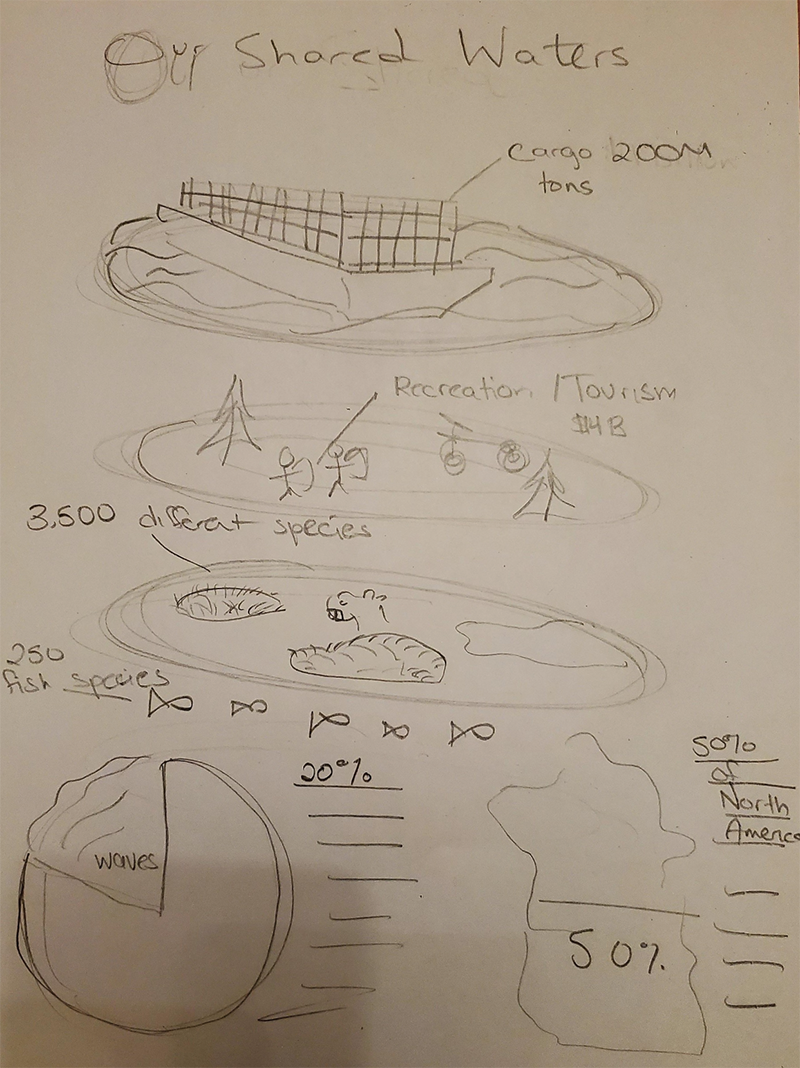 Our Shared Waters
Cargo 200M
tons
Recreation / Tourism
$14B
3,500 different species
250
fish species
20%
50%
of
North
America
waves
50%